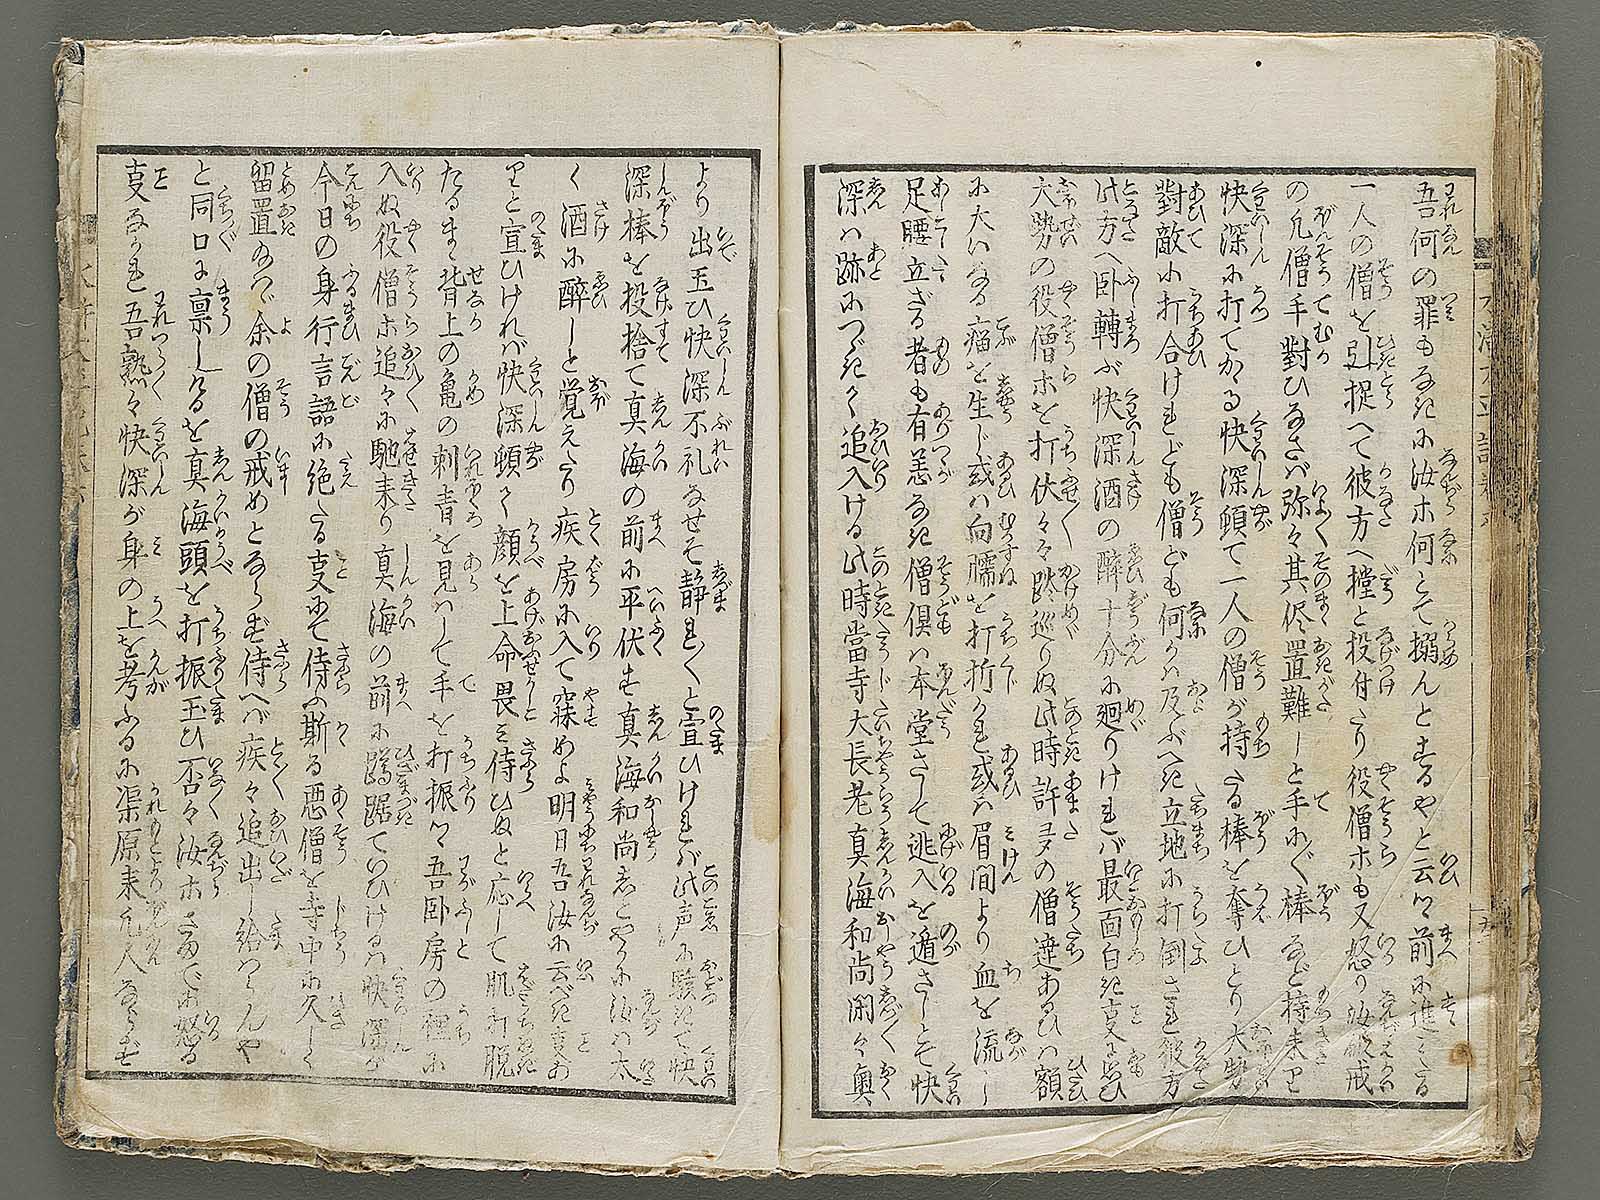 吾何の罪もなきに汝ホ何とて搦んとするやと云つゝ前に進みたる
一人の僧を引捉へて彼方へ摚と投付たり役僧ホも又怒り汝破戒
の凡僧手對ひなさば弥々其侭置難しと手に〴〵棒など持来り
快深に打てかゝる快深頓て一人の僧が持たる棒を奪ひとり大勢
對敵に打合けれども僧ども何かは及ぶべき立地に打倒され彼方
此方へ臥轉ぶ快深酒の酔十分に廻りければ最面白き叓に思ひ
大勢の役僧ホを打伏々々欠巡りぬ此時許多の僧達あるひは額
に大いなる瘤を生じ或は向臑を打折かれ或は眉間より血を流し
足腰立ざる者も有恙なき僧倶は本堂さして逃入を遁さじとて快
深は跡につゞきて追入ける此時當寺大長老真海和尚閑々奥
より出玉ひ快深不礼なせそ静れ〳〵と宣ひければ此声に駭きて快
深棒を投捨て真海の前に平伏す真海和尚しとやかに汝は太
く酒に酔しと覚えたり疾房に入て寐めよ明日吾汝に云べき叓あ
りと宣ひければ快深頓て顔を上命畏み侍ひぬと応して肌打脱
たるまゝ背上の亀の刺青を見はして手を打振つゝ吾臥房の裡に
入ぬ役僧ホ追々に馳来り真海の前に蹲踞ていひけるは快深が
今日の身行言語に絶たる叓にて侍ふ斯る悪僧を寺中に久しく
留置なば余の僧の戒めとならず侍へば疾々追出し給はらんや
と同口に稟しけるを真海頭を打振玉ひ否々汝ホさまでな怒る
叓なかれ吾熟々快深が身の上を考ふるに渠原来凡人ならず